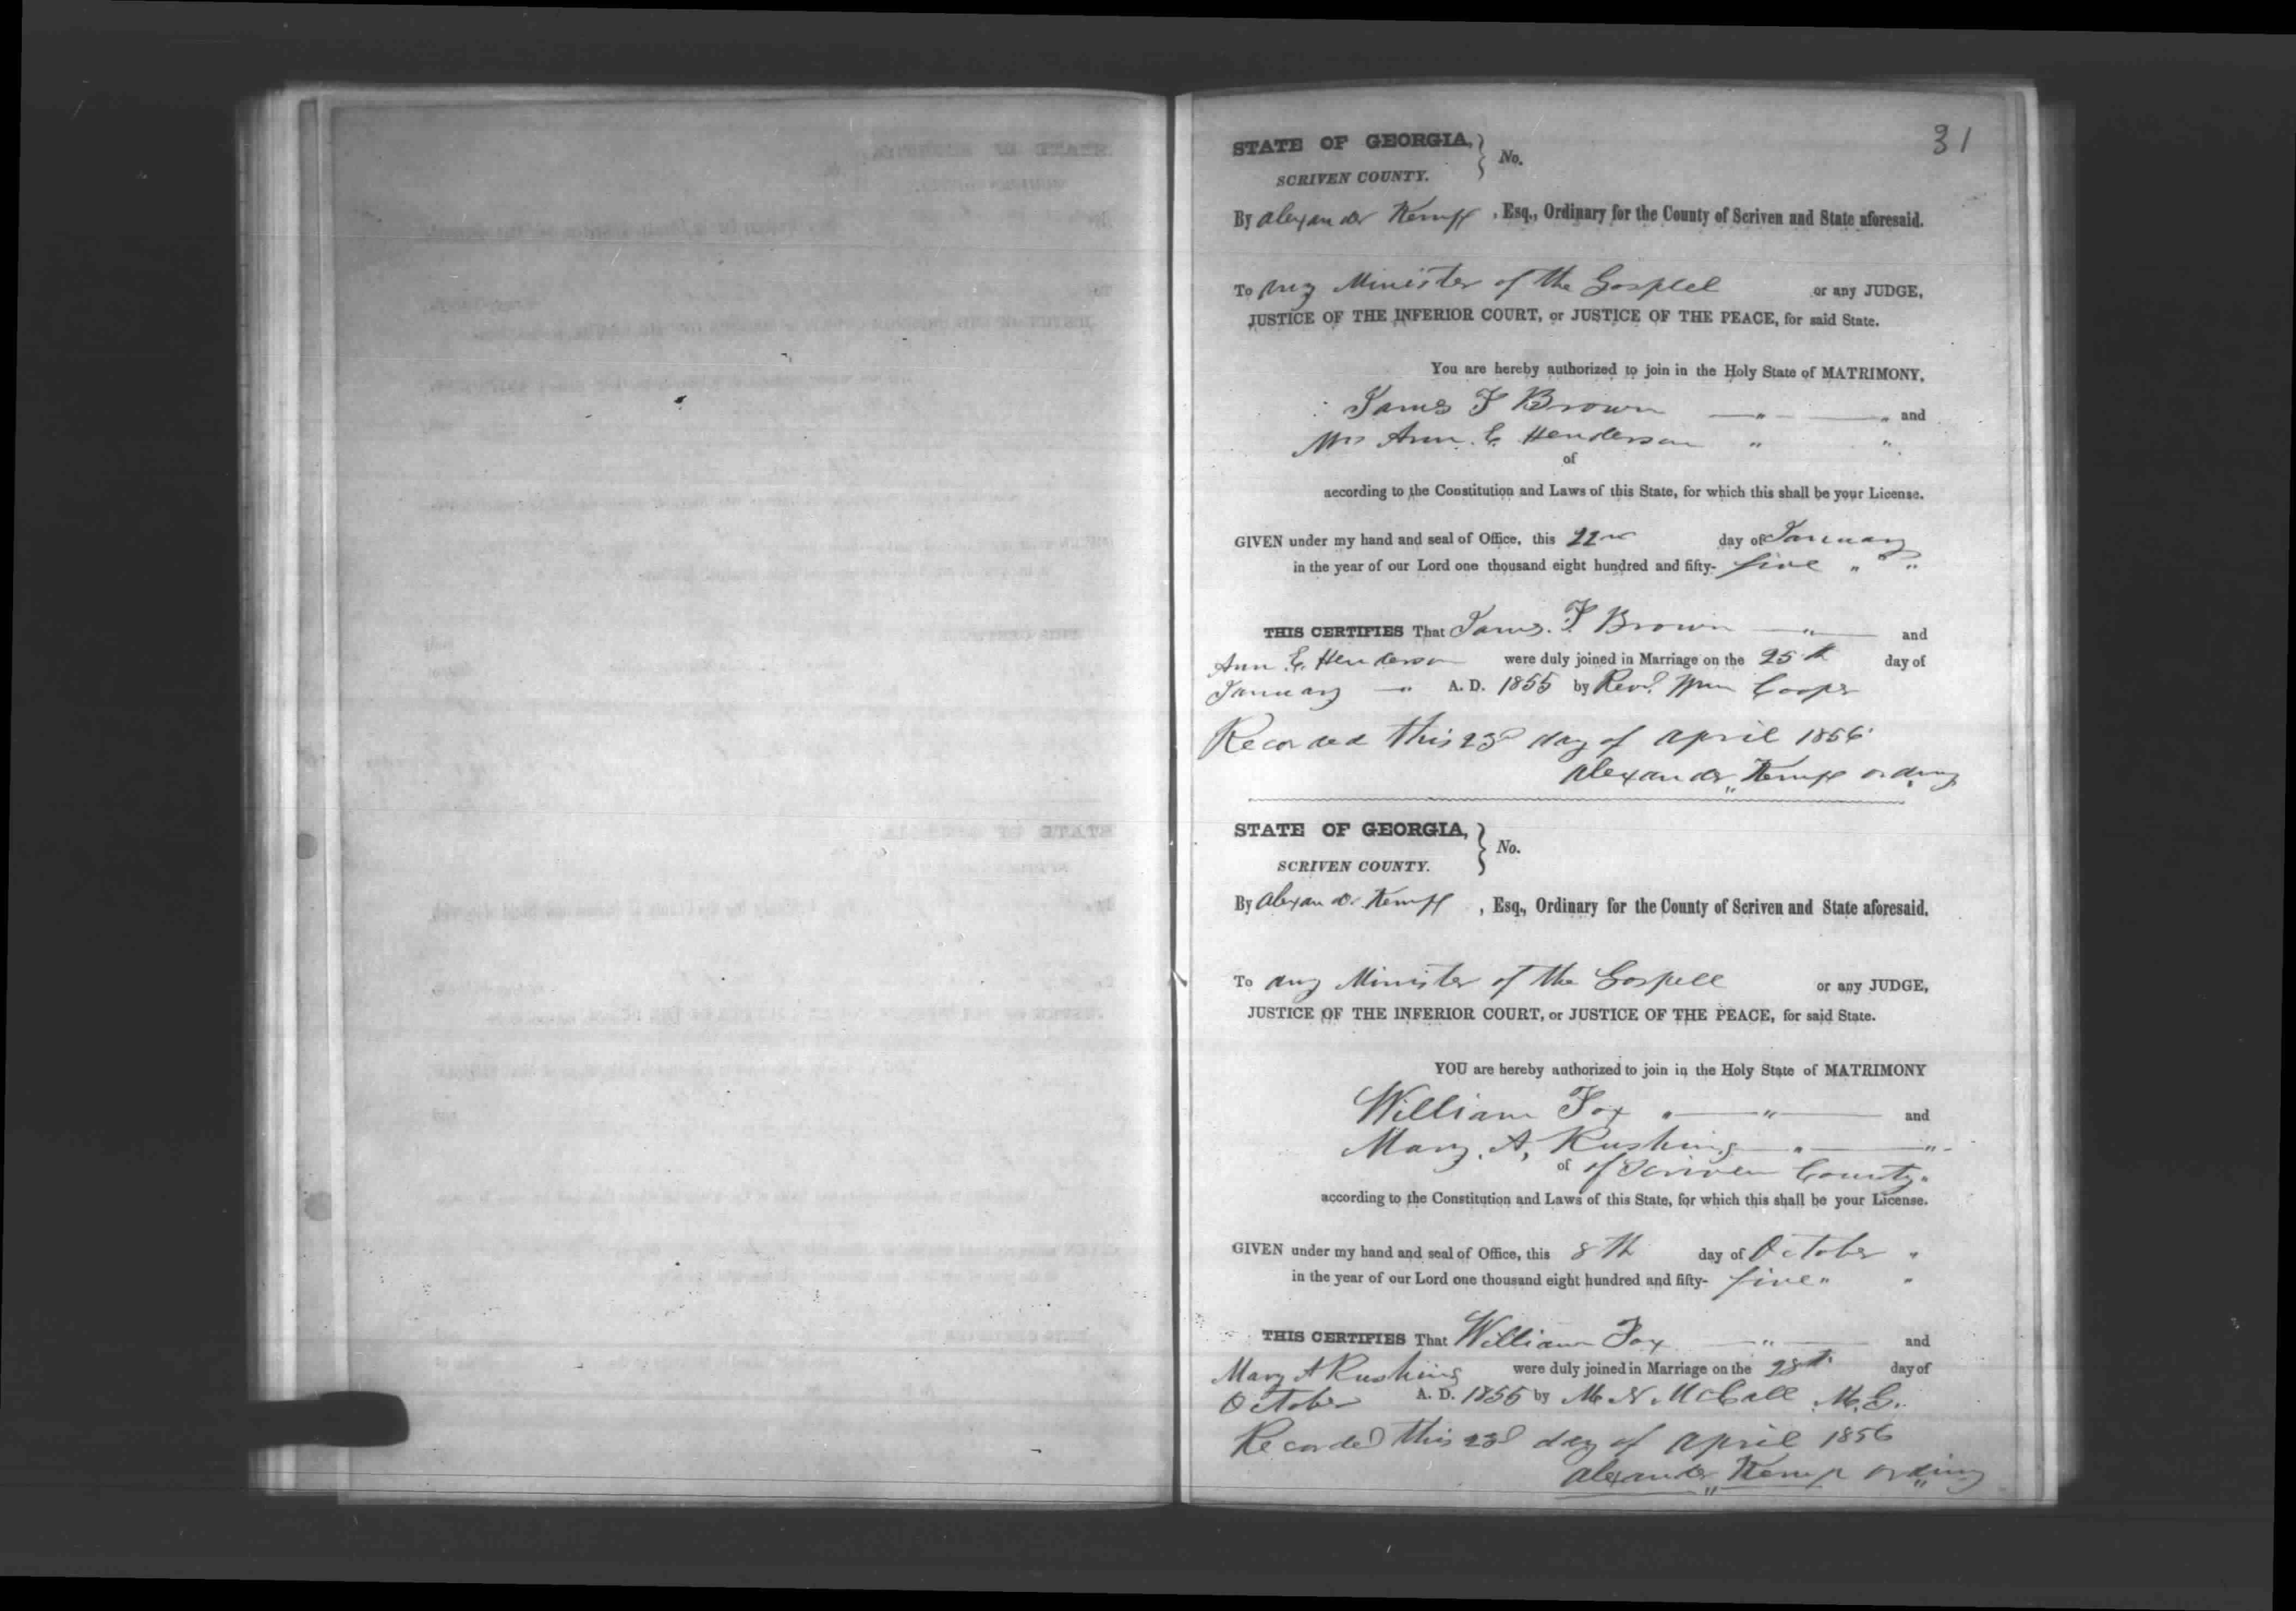 31
STATE OF GEORGIA, } No.
SCRIVEN COUNTY.
By Alexander Kemp, Esq., Ordinary for the County of Scriven and State aforesaid.
To any Minister of the Gosplel or any JUDGE,
JUSTICE OF THE INFERIOR COURT, or JUSTICE OF THE PEACE, for said State.
You are hereby authorized to join in the Holy State of MATRIMONY,
James F Brown — " — " and
Mrs Ann. E. Henderson " "
of
according to the Constitution and Laws of this State, for which this shall be your License.
GIVEN under my hand and seal of Office, this 22nd day of January
in the year of our Lord one thousand eight hundred and fifty- five " "
THIS CERTIFIES That James. F. Brown — " — and
Ann E. Henderson were duly joined in Marriage on the 25th day of
January — " A. D. 1855 by Revd. Wm Cooper
Recorded this 23d day of April 1856
Alexander Kemp ordiny
STATE OF GEORGIA, } No.
SCRIVEN COUNTY.
By Alexander Kemp, Esq., Ordinary for the County of Scriven and State aforesaid.
To any Minister of the Gospell or any JUDGE,
JUSTICE OF THE INFERIOR COURT, or JUSTICE OF THE PEACE, for said State.
YOU are hereby authorized to join in the Holy State of MATRIMONY
William Fox " — " — and
Mary. A, Rushing — " — "
of of Scriven County.
according to the Constitution and Laws of this State, for which this shall be your License.
GIVEN under my hand and seal of Office, this 8th day of October "
in the year of our Lord one thousand eight hundred and fifty- five " "
THIS CERTIFIES That William Fox — " — and
Mary A Rushing were duly joined in Marriage on the 28th day of
October A. D. 1855 by M. N. McCall M. G.
Recorded this 23d day of April 1856
Alexander Kemp ordiny